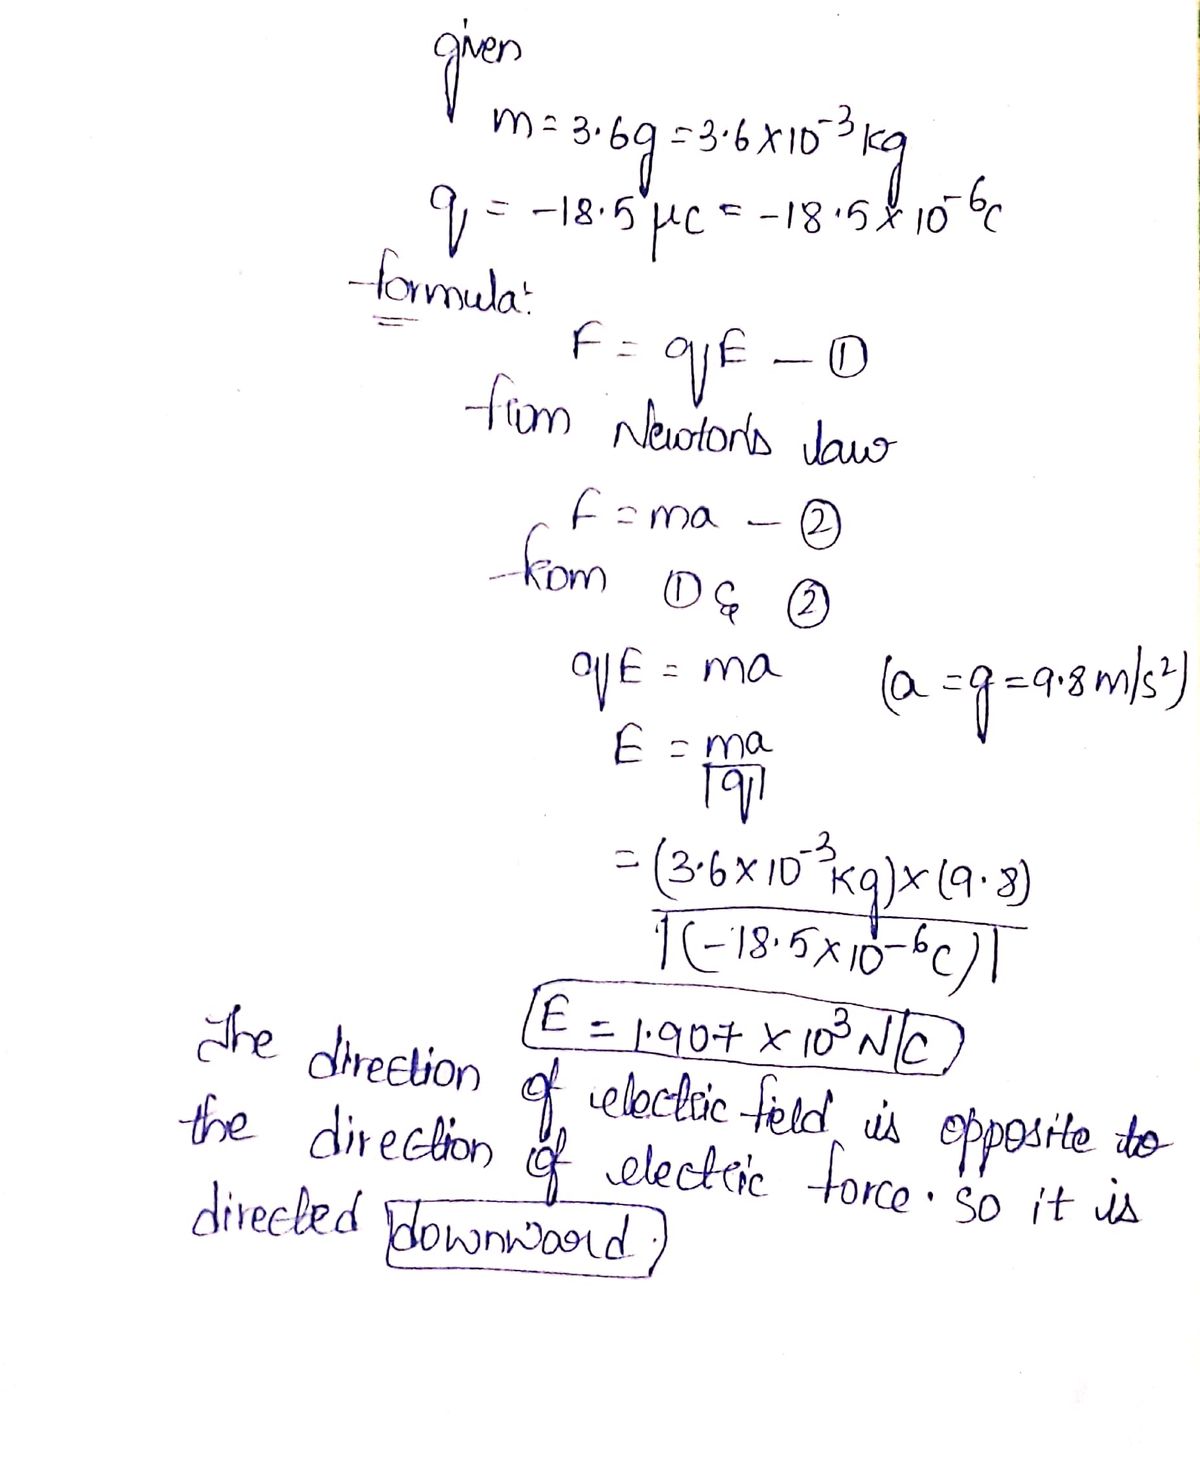 given
m = 3.6g = 3.6 x 10⁻³ kg
q = -18.5 μc = -18.5 x 10⁻⁶c
formula:
F = qE - ①
from Newton's law
F = ma - ②
from ① & ②
qE = ma (a = g = 9.8 m/s²)
E = ma
|q|
= (3.6 x 10⁻³ kg) x (9.8)
|(-18.5 x 10⁻⁶c)|
E = 1.907 x 10³ N/C
The direction of electric field is opposite to
the direction of electric force. so it is
directed downward.